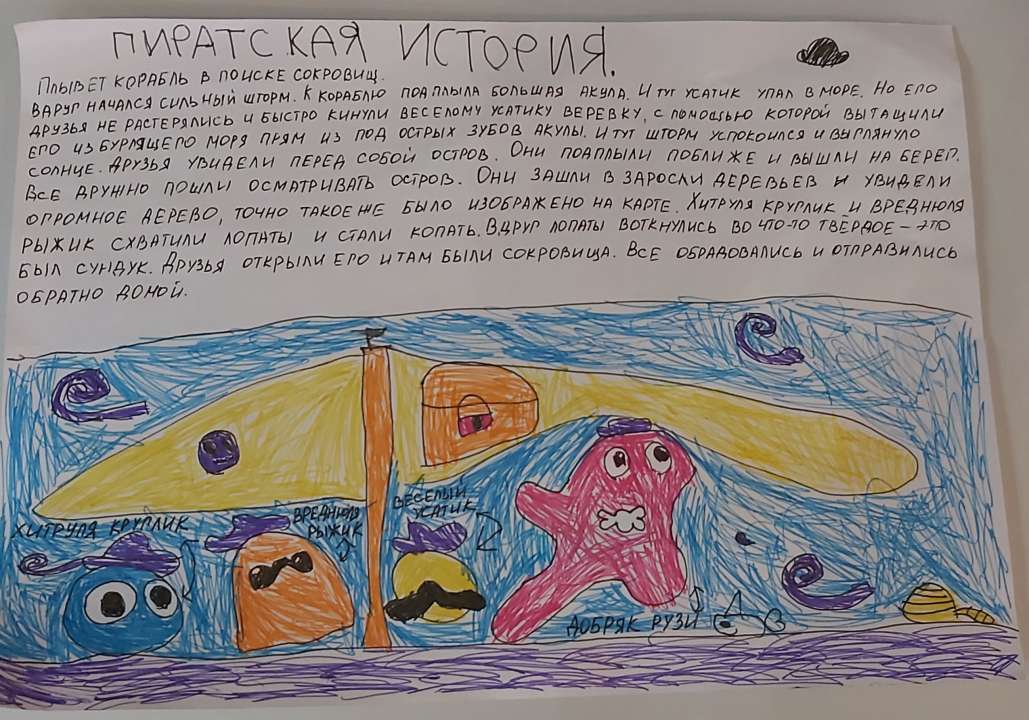 ПИРАТСКАЯ ИСТОРИЯ.
ПЛЫВЕТ КОРАБЛЬ В ПОИСКЕ СОКРОВИЩ.
ВДРУГ НАЧАЛСЯ СИЛЬНЫЙ ШТОРМ. К КОРАБЛЮ ПОДПЛЫЛА БОЛЬШАЯ АКУЛА. И ТУТ УСАТИК УПАЛ В МОРЕ. НО ЕГО
ДРУЗЬЯ НЕ РАСТЕРЯЛИСЬ И БЫСТРО КИНУЛИ ВЕСЕЛОМУ УСАТИКУ ВЕРЕВКУ, С ПОМОЩЬЮ КОТОРОЙ ВЫТАЩИЛИ
ЕГО ИЗ БУРЛЯЩЕГО МОРЯ ПРЯМ ИЗ ПОД ОСТРЫХ ЗУБОВ АКУЛЫ. И ТУТ ШТОРМ УСПОКОИЛСЯ И ВЫГЛЯНУЛО
СОЛНЦЕ. ДРУЗЬЯ УВИДЕЛИ ПЕРЕД СОБОЙ ОСТРОВ. ОНИ ПОДПЛЫЛИ ПОБЛИЖЕ И ВЫШЛИ НА БЕРЕГ.
ВСЕ ДРУЖНО ПОШЛИ ОСМАТРИВАТЬ ОСТРОВ. ОНИ ЗАШЛИ В ЗАРОСЛИ ДЕРЕВЬЕВ И УВИДЕЛИ
ОГРОМНОЕ ДЕРЕВО, ТОЧНО ТАКОЕ ЖЕ БЫЛО ИЗОБРАЖЕНО НА КАРТЕ. ХИТРУЛЯ КРУГЛИК И ВРЕДНЮЛЯ
РЫЖИК СХВАТИЛИ ЛОПАТЫ И СТАЛИ КОПАТЬ. ВДРУГ ЛОПАТЫ ВОТКНУЛИСЬ ВО ЧТО-ТО ТВЁРДОЕ – ЭТО
БЫЛ СУНДУК. ДРУЗЬЯ ОТКРЫЛИ ЕГО И ТАМ БЫЛИ СОКРОВИЩА. ВСЕ ОБРАДОВАЛИСЬ И ОТПРАВИЛИСЬ
ОБРАТНО ДОМОЙ.
ХИТРУЛЯ КРУГЛИК
ВРЕДНЮЛЯ
РЫЖИК
ВЕСЕЛЫЙ
УСАТИК
ДОБРЯК РУЗИ